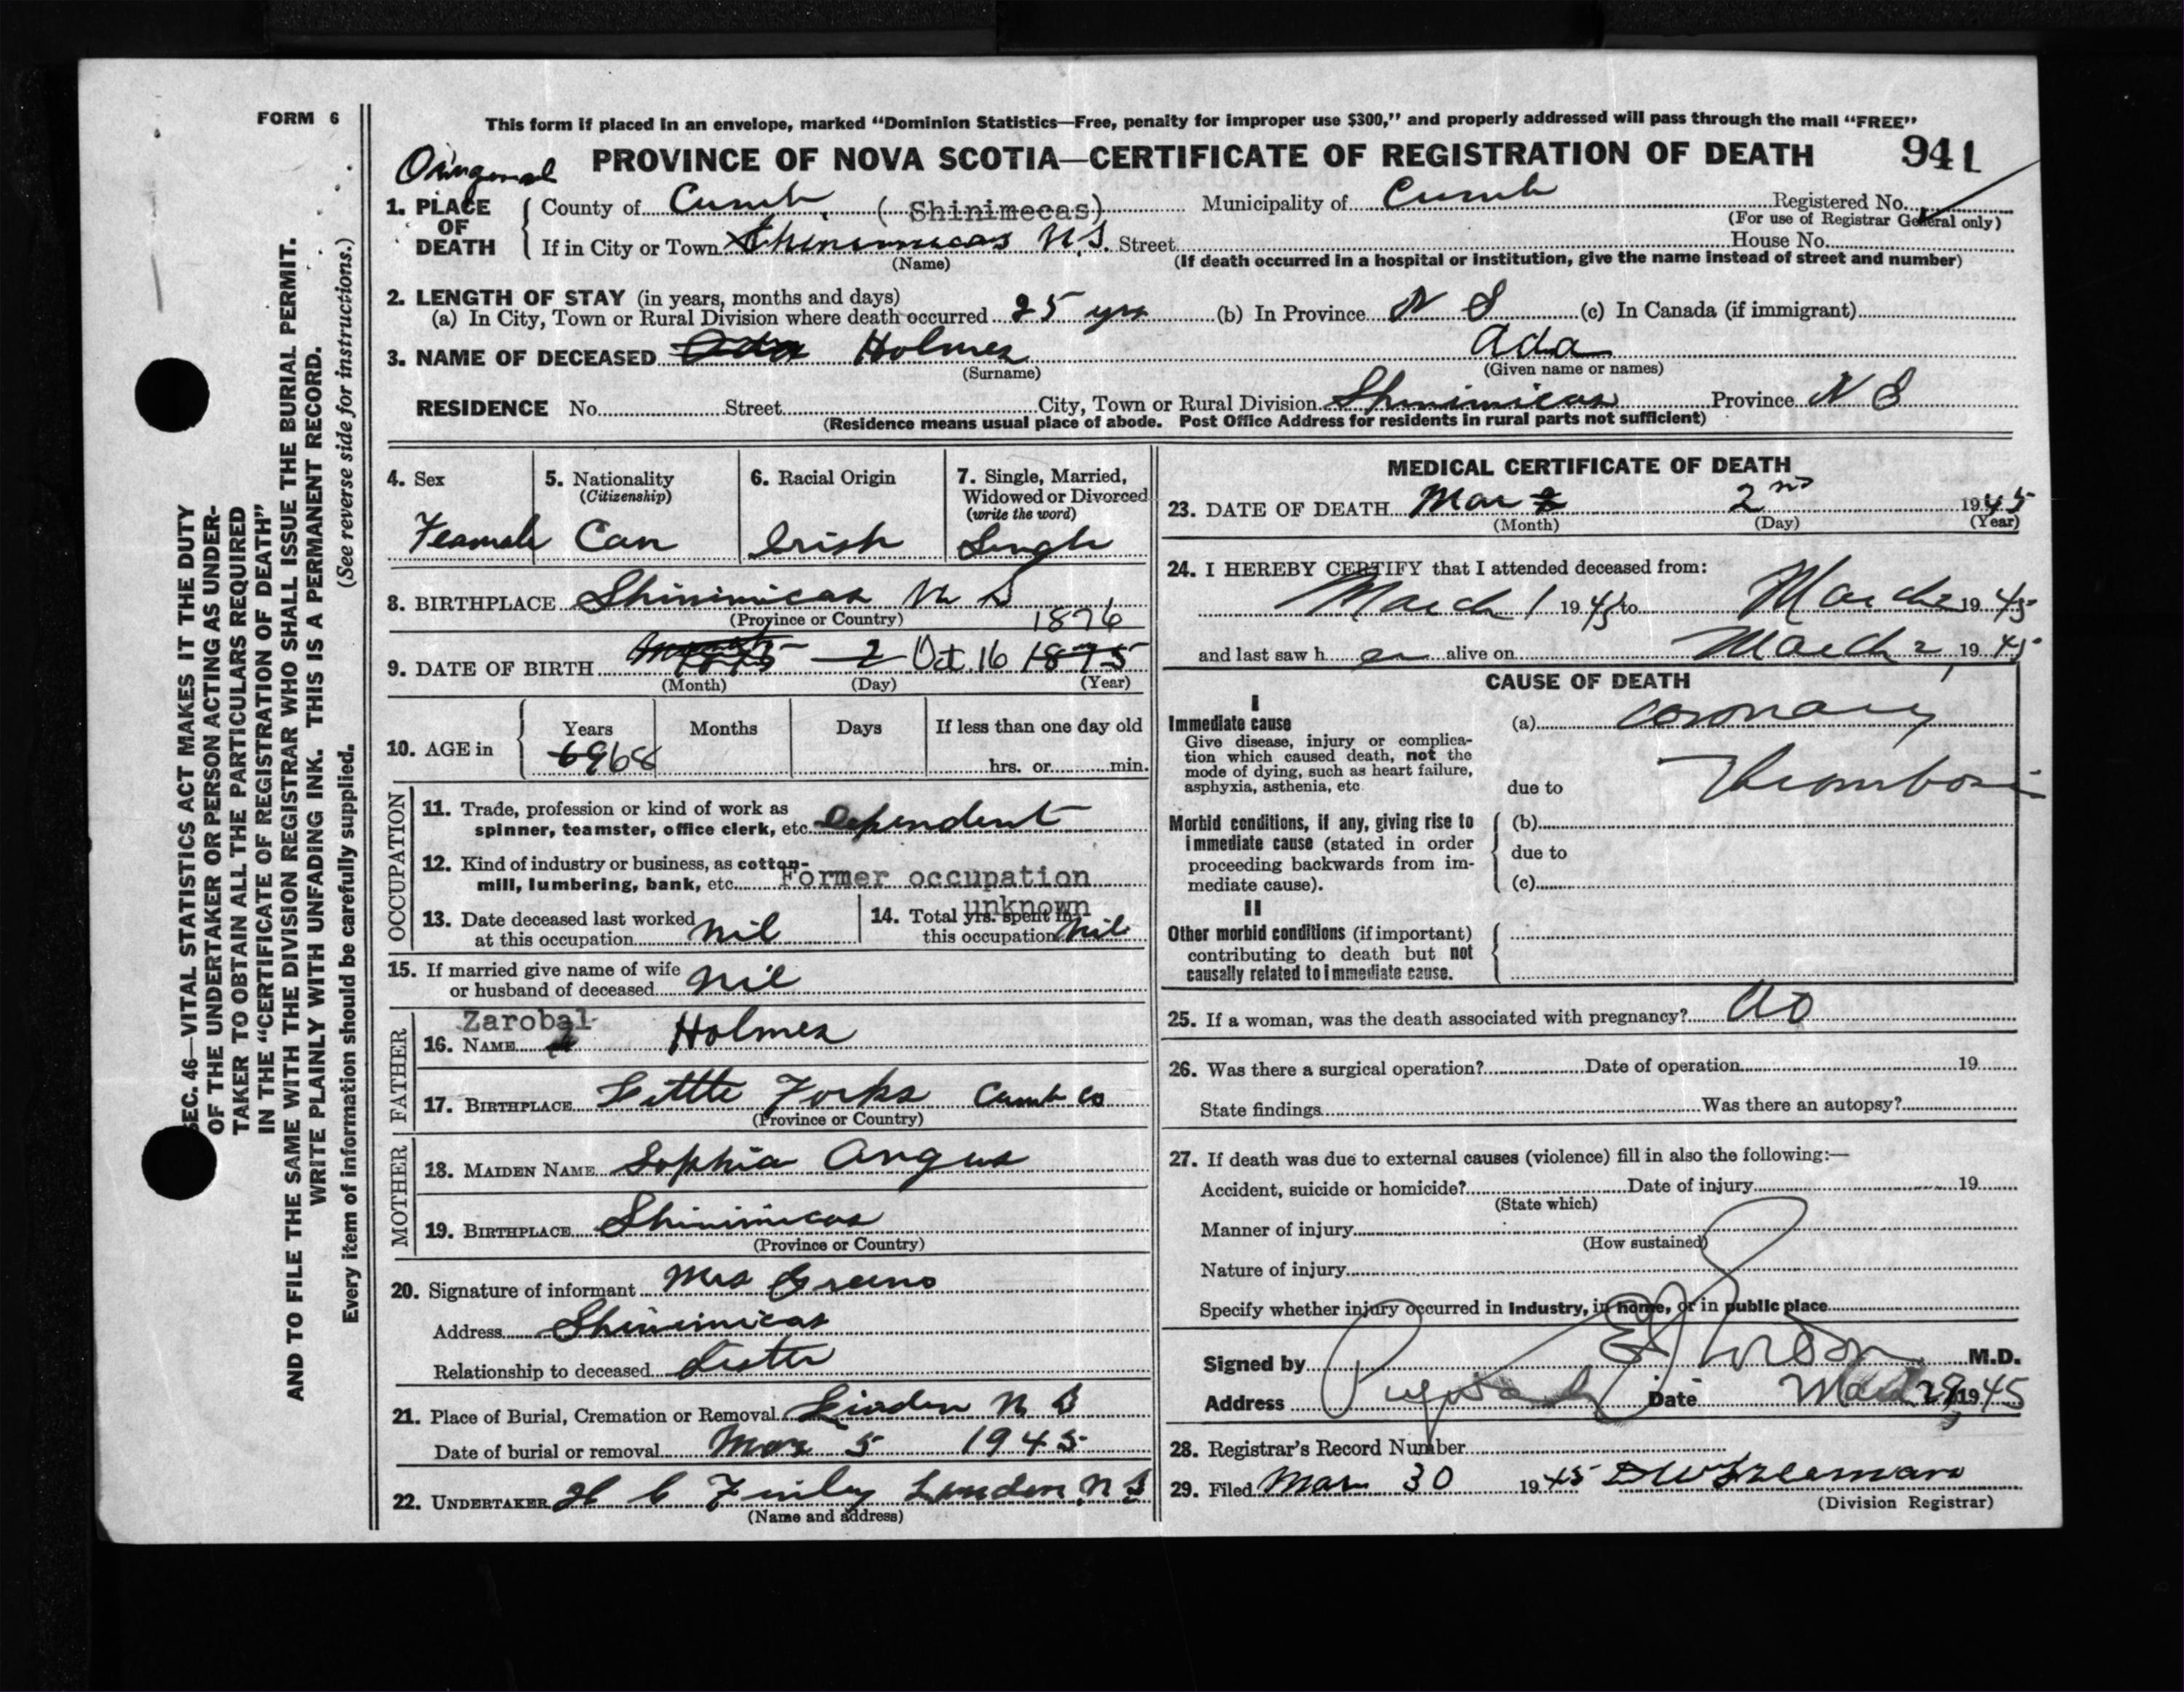 FORM 6
This form if placed in an envelope, marked "Dominion Statistics—Free, penalty for improper use $300," and properly addressed will pass through the mail "FREE"
PROVINCE OF NOVA SCOTIA—CERTIFICATE OF REGISTRATION OF DEATH 941
1. PLACE OF DEATH County of Cumb. (Shinimecas) Municipality of Cumb Registered No.
(For use of Registrar General only)
If in City or Town Shinimicas N.S. Street House No.
(Name) (If death occurred in a hospital or institution, give the name instead of street and number)
2. LENGTH OF STAY (in years, months and days)
(a) In City, Town or Rural Division where death occurred 25 yrs (b) In Province N S (c) In Canada (if immigrant)
3. NAME OF DECEASED Ada Holmes Ada
(Surname) (Given name or names)
RESIDENCE No. Street City, Town or Rural Division Shinimicas Province N S
(Residence means usual place of abode. Post Office Address for residents in rural parts not sufficient)
4. Sex 5. Nationality (Citizenship) 6. Racial Origin 7. Single, Married, Widowed or Divorced (write the word)
Feamale Can Irish Single
8. BIRTHPLACE Shinimicas N S
(Province or Country)
1876
9. DATE OF BIRTH 2 Oct 16 1875
(Month) (Day) (Year)
10. AGE in Years Months Days If less than one day old
69 68 hrs. or min.
OCCUPATION
11. Trade, profession or kind of work as
spinner, teamster, office clerk, etc. Dependent
12. Kind of industry or business, as cotton-
mill, lumbering, bank, etc. Former occupation
unknown
13. Date deceased last worked at this occupation nil 14. Total yrs. spent in this occupation nil
15. If married give name of wife
or husband of deceased nil
FATHER
Zarobal
16. NAME Holmes
17. BIRTHPLACE Little Forks Cumb Co
(Province or Country)
MOTHER
18. MAIDEN NAME Sophia Angus
19. BIRTHPLACE Shinimicas
(Province or Country)
20. Signature of informant Mrs Greeno
Address Shinimicas
Relationship to deceased Sister
21. Place of Burial, Cremation or Removal Linden N S
Date of burial or removal Mar 5 1945
22. UNDERTAKER H C Finley Linden N S
(Name and address)
MEDICAL CERTIFICATE OF DEATH
23. DATE OF DEATH Mar 2nd 1945
(Month) (Day) (Year)
24. I HEREBY CERTIFY that I attended deceased from:
March 1 1945 to March 2 1945
and last saw h er alive on March 2, 1945
CAUSE OF DEATH
I
Immediate cause (a) Coronary
Give disease, injury or complica-
tion which caused death, not the
mode of dying, such as heart failure,
asphyxia, asthenia, etc due to Thrombosis
Morbid conditions, if any, giving rise to (b)
immediate cause (stated in order due to
proceeding backwards from im-
mediate cause). (c)
II
Other morbid conditions (if important)
contributing to death but not
causally related to immediate cause.
25. If a woman, was the death associated with pregnancy? No
26. Was there a surgical operation? Date of operation 19
State findings Was there an autopsy?
27. If death was due to external causes (violence) fill in also the following:—
Accident, suicide or homicide? Date of injury 19
(State which)
Manner of injury
(How sustained)
Nature of injury
Specify whether injury occurred in Industry, in home, or in public place
Signed by M.D.
Address Pugwash Date Mar 29, 1945
28. Registrar's Record Number
29. Filed Mar 30 1945
(Division Registrar)
SEC. 46—VITAL STATISTICS ACT MAKES IT THE DUTY
OF THE UNDERTAKER OR PERSON ACTING AS UNDER-
TAKER TO OBTAIN ALL THE PARTICULARS REQUIRED
IN THE "CERTIFICATE OF REGISTRATION OF DEATH"
AND TO FILE THE SAME WITH THE DIVISION REGISTRAR WHO SHALL ISSUE THE BURIAL PERMIT.
WRITE PLAINLY WITH UNFADING INK. THIS IS A PERMANENT RECORD.
Every item of information should be carefully supplied. (See reverse side for instructions.)